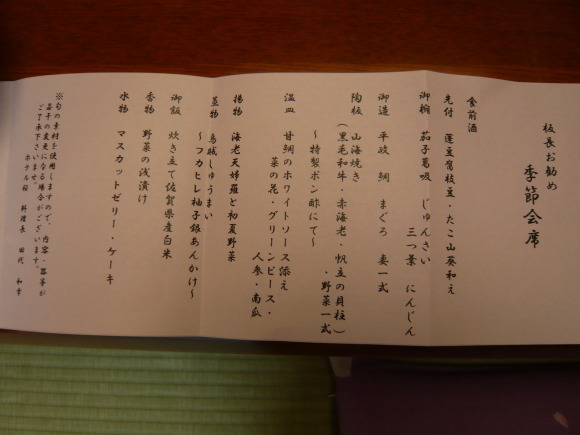 板長お勧め
季節会席
食前酒
先付 蓮豆腐枝豆・たこ山葵和え
御椀 茄子葛吸 じゅんさい
三つ葉 にんじん
御造 平政 鯛 まぐろ 妻一式
陶板 山海焼き
(黒毛和牛・赤海老・帆立の貝柱)
・野菜一式
～特製ポン酢にて～
温皿 甘鯛のホワイトソース添え
菜の花・グリーンピース・
人参・南瓜
揚物 海老天婦羅と初夏野菜
蒸物 烏賊しゅうまい
～フカヒレ柚子銀あんかけ～
御飯 炊き立て佐賀県産白米
香物 野菜の浅漬け
水物 マスカットゼリー・ケーキ
※旬の素材を使用しますので、内容・器等が
若干の変更になる場合がございます。
ご了承下さいませ。
ホテル桜 料理長 田代 和幸